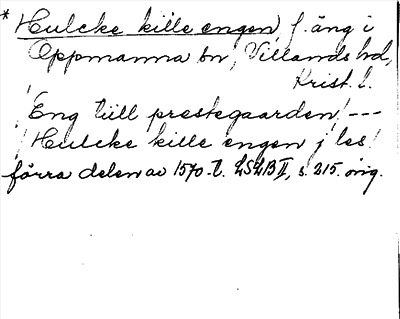 * Hulcke kille engen, f. äng i
Oppmanna sn, Villands hd,
Krist. l.
"Eng tiill prestegaarden" ---
"Hulcke kille engen j les"
förra delen av 1570-t. LSLB II, s. 215. orig.